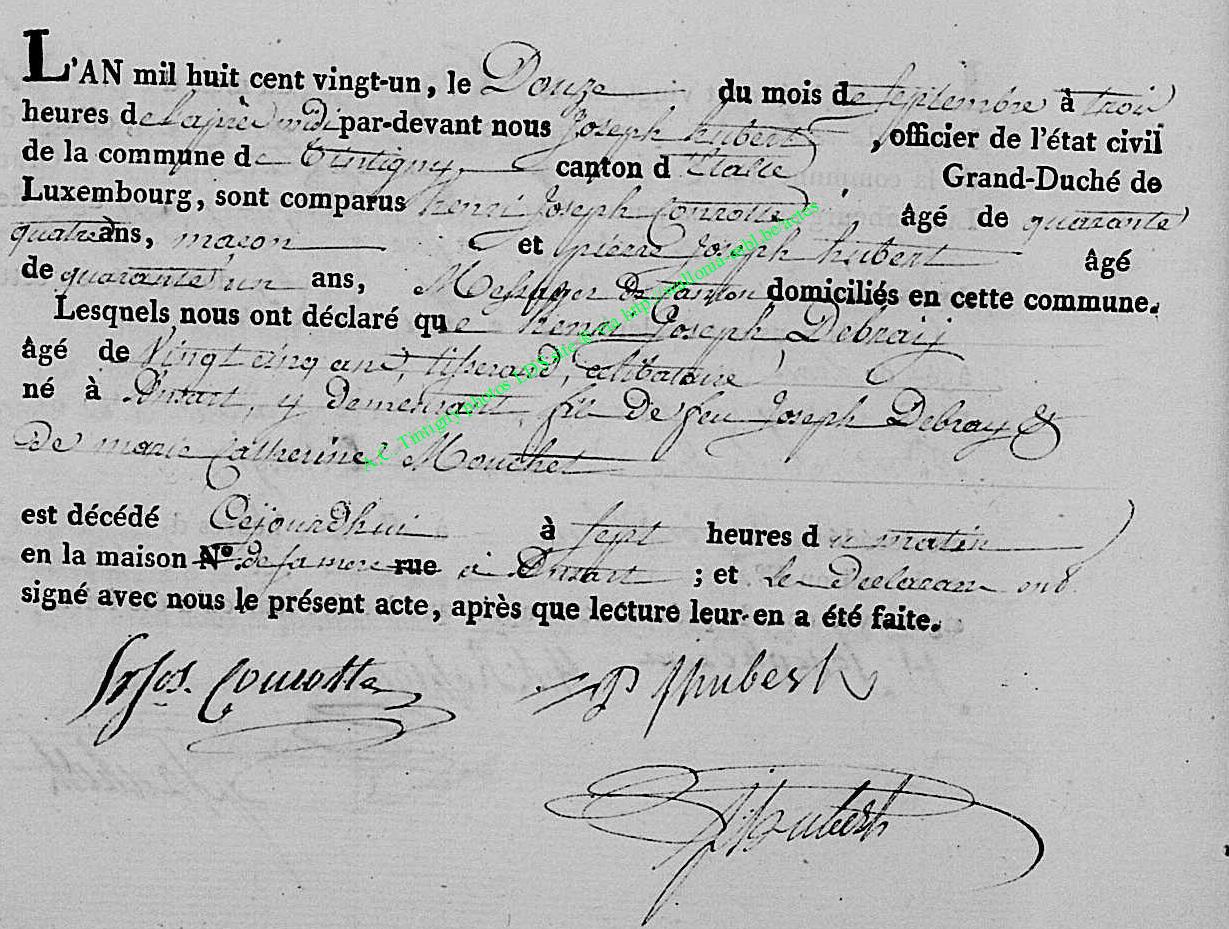 L'AN mil huit cent vingt-un, le Douze du mois de septembre à trois
heures de l'apres midi par-devant nous Joseph hubert, officier de l'état civil
de la commune de Tintigny, canton d'Etalle Grand-Duché de
Luxembourg, sont comparus henri Joseph Courotte âgé de quarante
quatre ans, macon et pierre Joseph hubert âgé
de quarante un ans, Messager de canton domiciliés en cette commune.
Lesquels nous ont déclaré que henri Joseph Debraij
âgé de Vingt cinq ans, tisserand, celibataire
né à Ansart, y demeurant, fils de feu Joseph Debray &
de marie Catherine Mouchet
est décédé Cejourdhui à sept heures du matin
en la maison N° de sa mere rue à Ansart ; et les declarans ont
signé avec nous le présent acte, après que lecture leur en a été faite.
Jos. Courotte P J hubert
J hubert
A.C. Tintigny photos